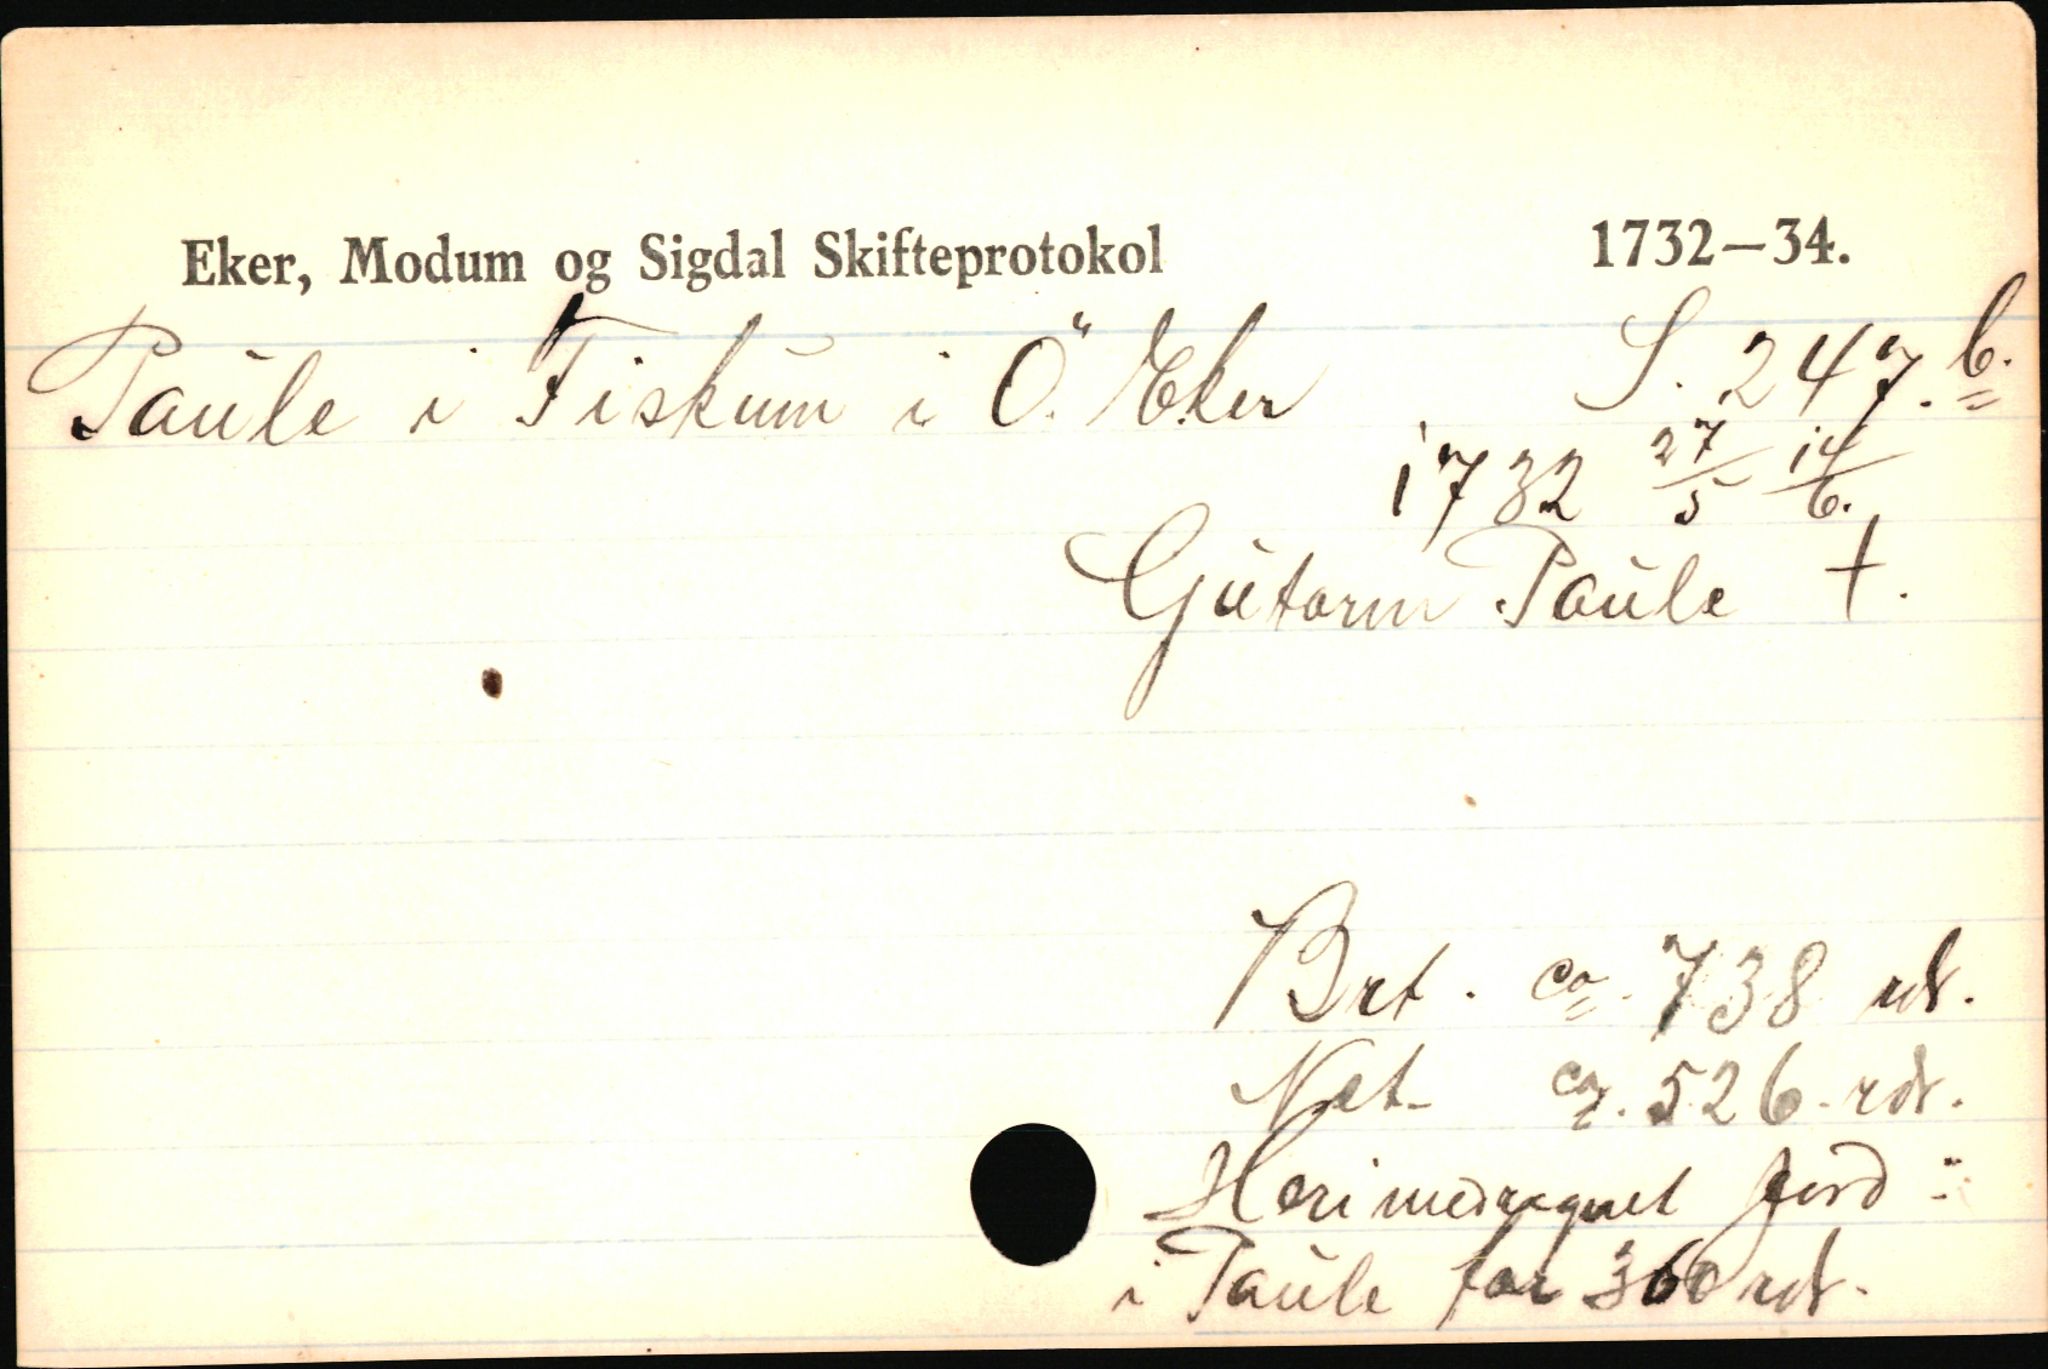 Eker, Modum og Sigdal Skifteprotokol 1732—34.
Paule i Fiskum i Ö. Eker S. 247.b.
1732 27/5 14/6.
Gutorm Paule †.
Brt. ca. 738 rdr.
Net. ca. 526 rdr.
Heri medregnet jord:
i Paule for 360 rdr.